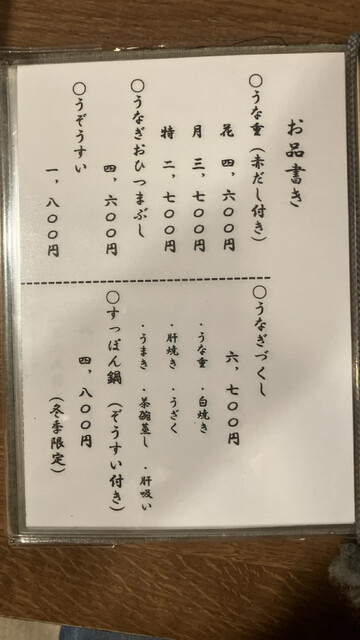 お品書き
〇うな重（赤だし付き）
花 四、六〇〇円
月 三、七〇〇円
特 二、七〇〇円
〇うなぎおひつまぶし
四、六〇〇円
〇うぞうすい
一、八〇〇円
〇うなぎづくし
六、七〇〇円
・うな重 ・白焼き
・肝焼き ・うざく
・うまき ・茶碗蒸し ・肝吸い
〇すっぽん鍋（ぞうすい付き）
四、八〇〇円
（冬季限定）